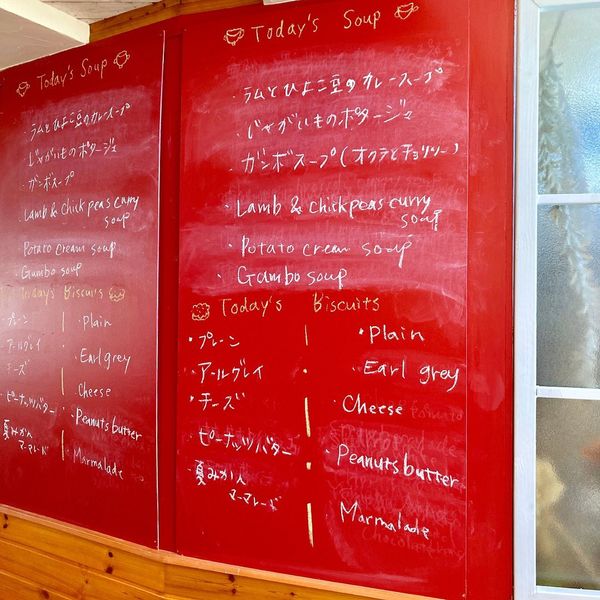 Today's Soup
・ラムとひよこ豆のカレースープ
・じゃがいものポタージュ
・ガンボスープ
・Lamb & Chickpeas curry
soup
・Potato cream soup
・Gumbo soup
Today's Biscuits
・プレーン | ・Plain
・アールグレイ ・Earl grey
・チーズ | ・Cheese
・ピーナッツバター ・Peanuts butter
・夏みかん
マーマレード | ・Marmalade
Today's Soup
・ラムとひよこ豆のカレースープ
・じゃがいものポタージュ
・ガンボスープ(オクラとチョリソー)
・Lamb & Chickpeas curry
soup
・Potato cream soup
・Gambo soup
Today's Biscuits
・プレーン | ・Plain
・アールグレイ ・ ・Earl grey
・チーズ | ・Cheese
・ピーナッツバター ・Peanuts butter
・夏みかん
マーマレード | ・Marmalade